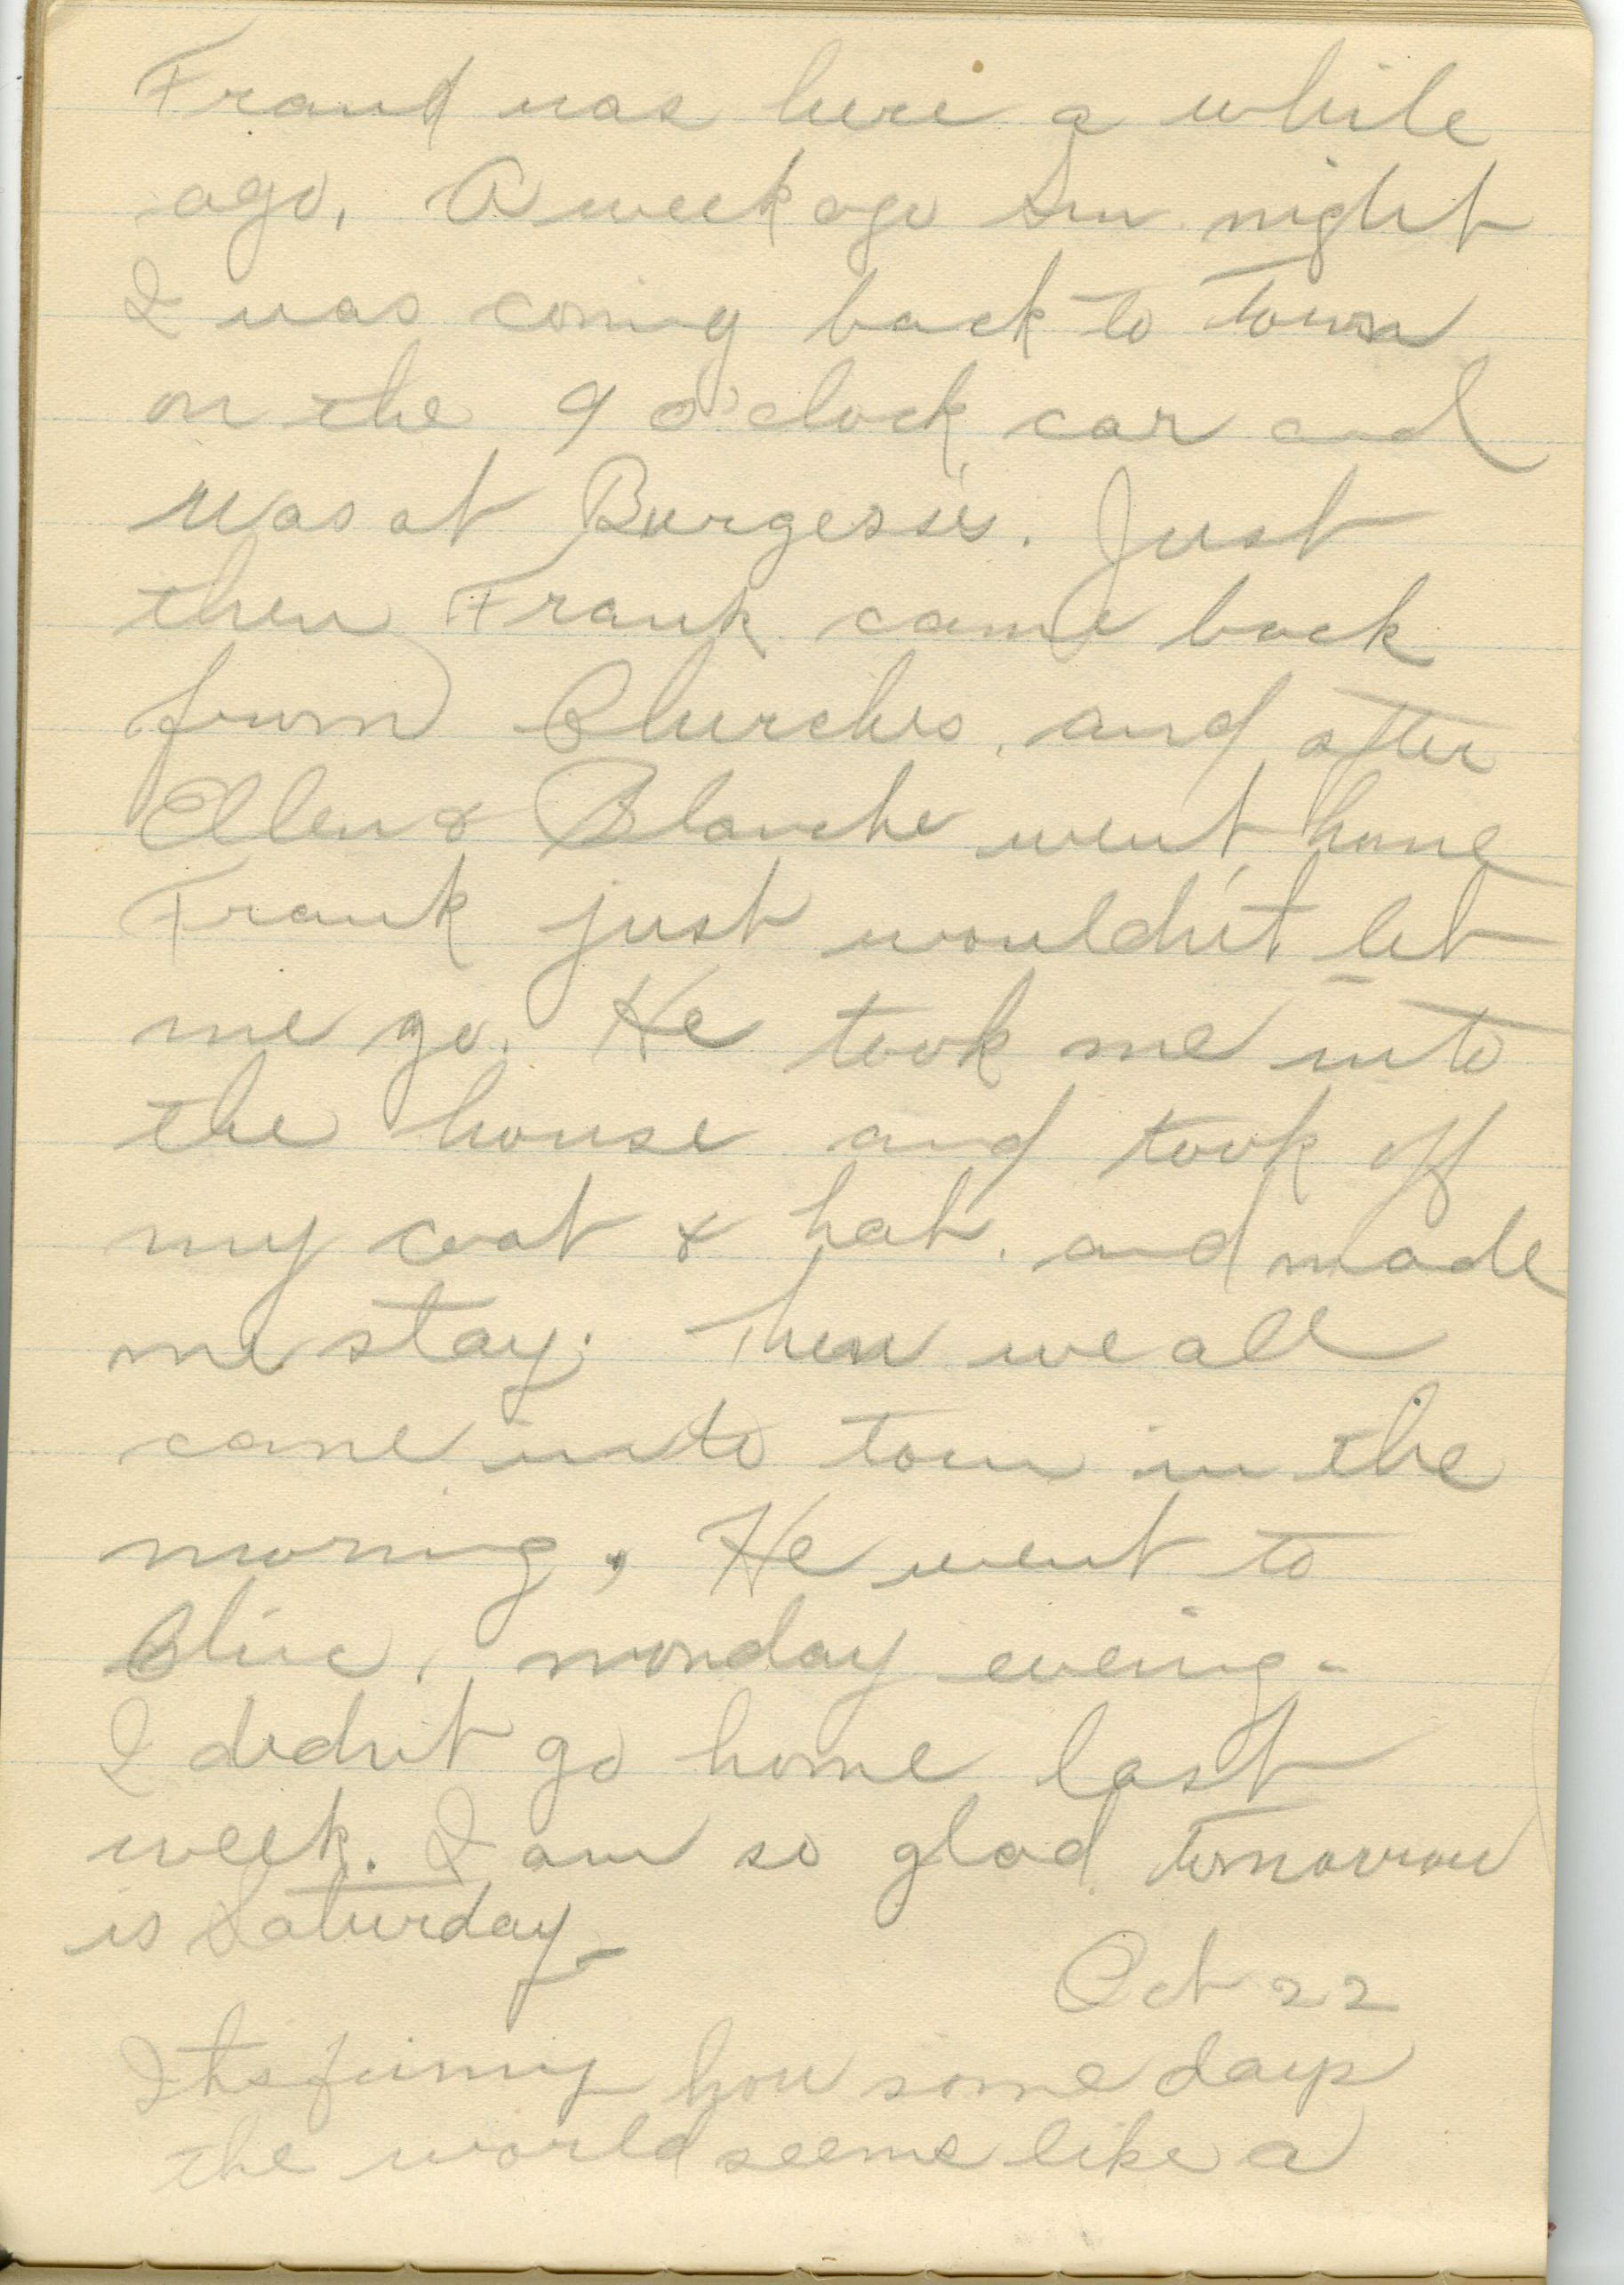 Frank was here a while
ago. A week ago Sun night
I was coming back to town
on the 9 o'clock car and
was at Burgess's. Just
then Frank came back
from Churches. and after
Ellen & Blanche went home
Frank just wouldn't let
me go. He took me into
the house and took off
my coat & hat. and made
me stay. Then we all
came into town in the
morning. He went to
Olive, monday evening.
I didn't go home last
week. I am so glad tomorrow
is Saturday.
Oct 22
Its funny how some days
the world seems like a